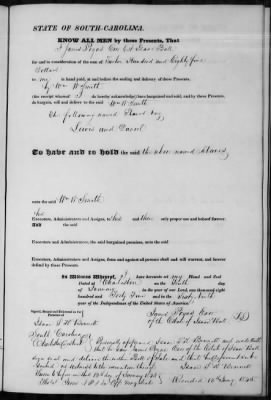 STATE OF SOUTH-CAROLINA.
KNOW ALL MEN by these Presents, That
I James Poyas Exor Est Isaac Ball
for and in consideration of the sum of Twelve Hundred and Eighty five
Dollars
to me in hand paid, at and before the sealing and delivery of these Presents,
by Wm W Smith
(the receipt whereof I do hereby acknowledge) have bargained and sold, and by these Presents,
do bargain, sell and deliver to the said Wm W Smith
the following named Slaves viz
Lewis and Daniel
To have and to hold the said the above named Slaves
unto the said Wm W Smith
his
Executors, Administrators and Assigns, to his and their only proper use and behoof forever.
And the said
Executors, Administrators and Assigns, the said bargained premises, unto the said
Executors, Administrators and Assigns, from and against all persons shall and will warrant, and forever
defend by these Presents.
In Witness Whereof, I have hereunto set my Hand and Seal
Dated at Charleston on the Tenth day
of January in the year of our Lord, one thousand eight
hundred and Forty Five and in the Sixty Ninth
year of the Independence of the United States of America.
Signed, Sealed and Delivered in the Presence of
James Poyas Exor
of the Estate of Isaac Ball
Isaac S K Bennett
South Carolina
Charleston District
Personally appeared Isaac S K Bennett and made oath
that he saw James Poyas Exor of the Estate of Isaac Ball
sign seal and deliver the within